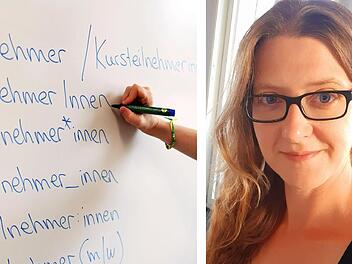 nehmer /Kursteilnehmerin
nehmer Innen
nehmer*innen
nehmer_innen
lnehmer:innen
nehmer (m/w)